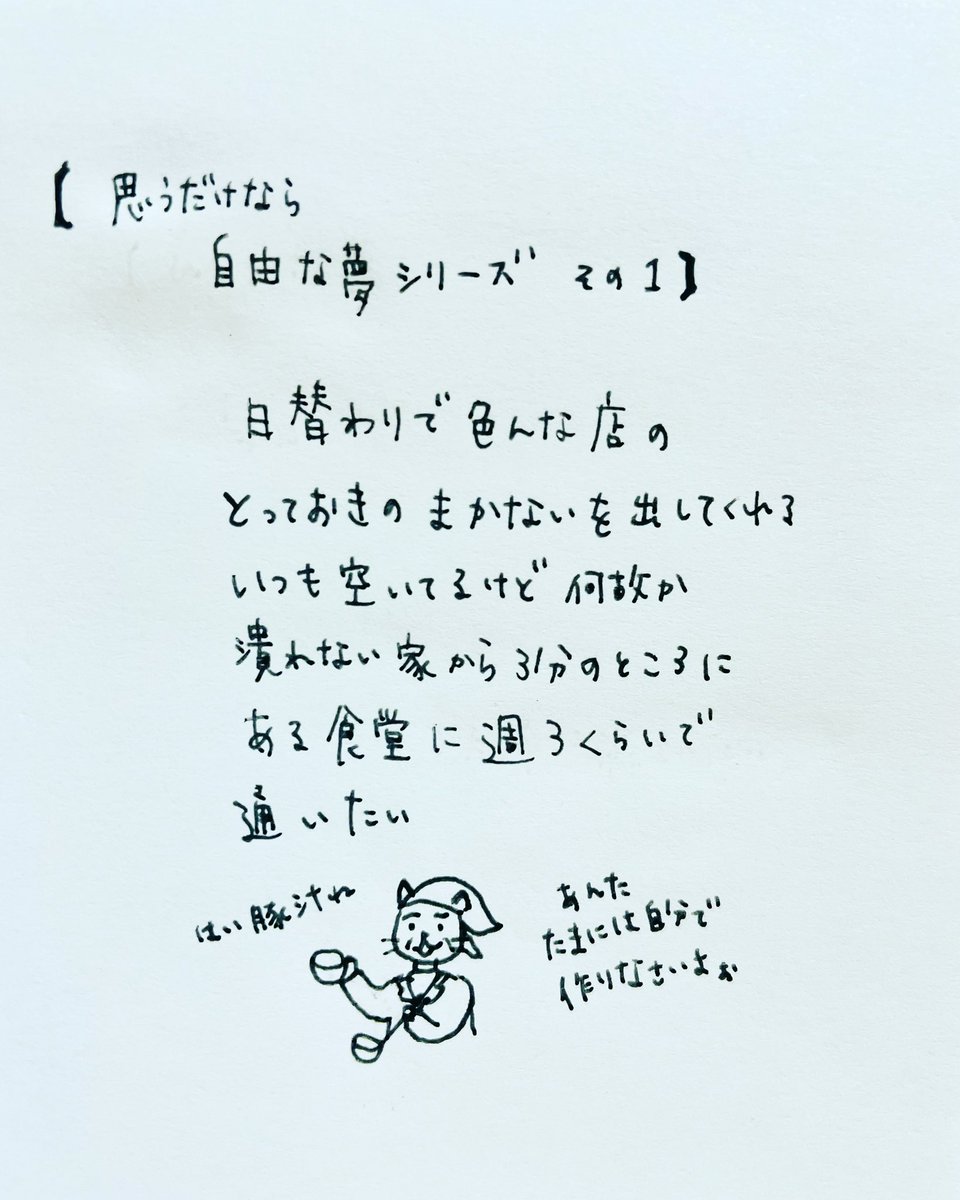 【思うだけなら
自由な夢シリーズ その1】
日替わりで色んな店の
とっておきのまかないを出してくれる
いつも空いてるけど何故か
潰れない家から3分のところに
ある食堂に週3くらいで
通いたい
はい豚汁ね
あんた
たまには自分で
作りなさいよぉ